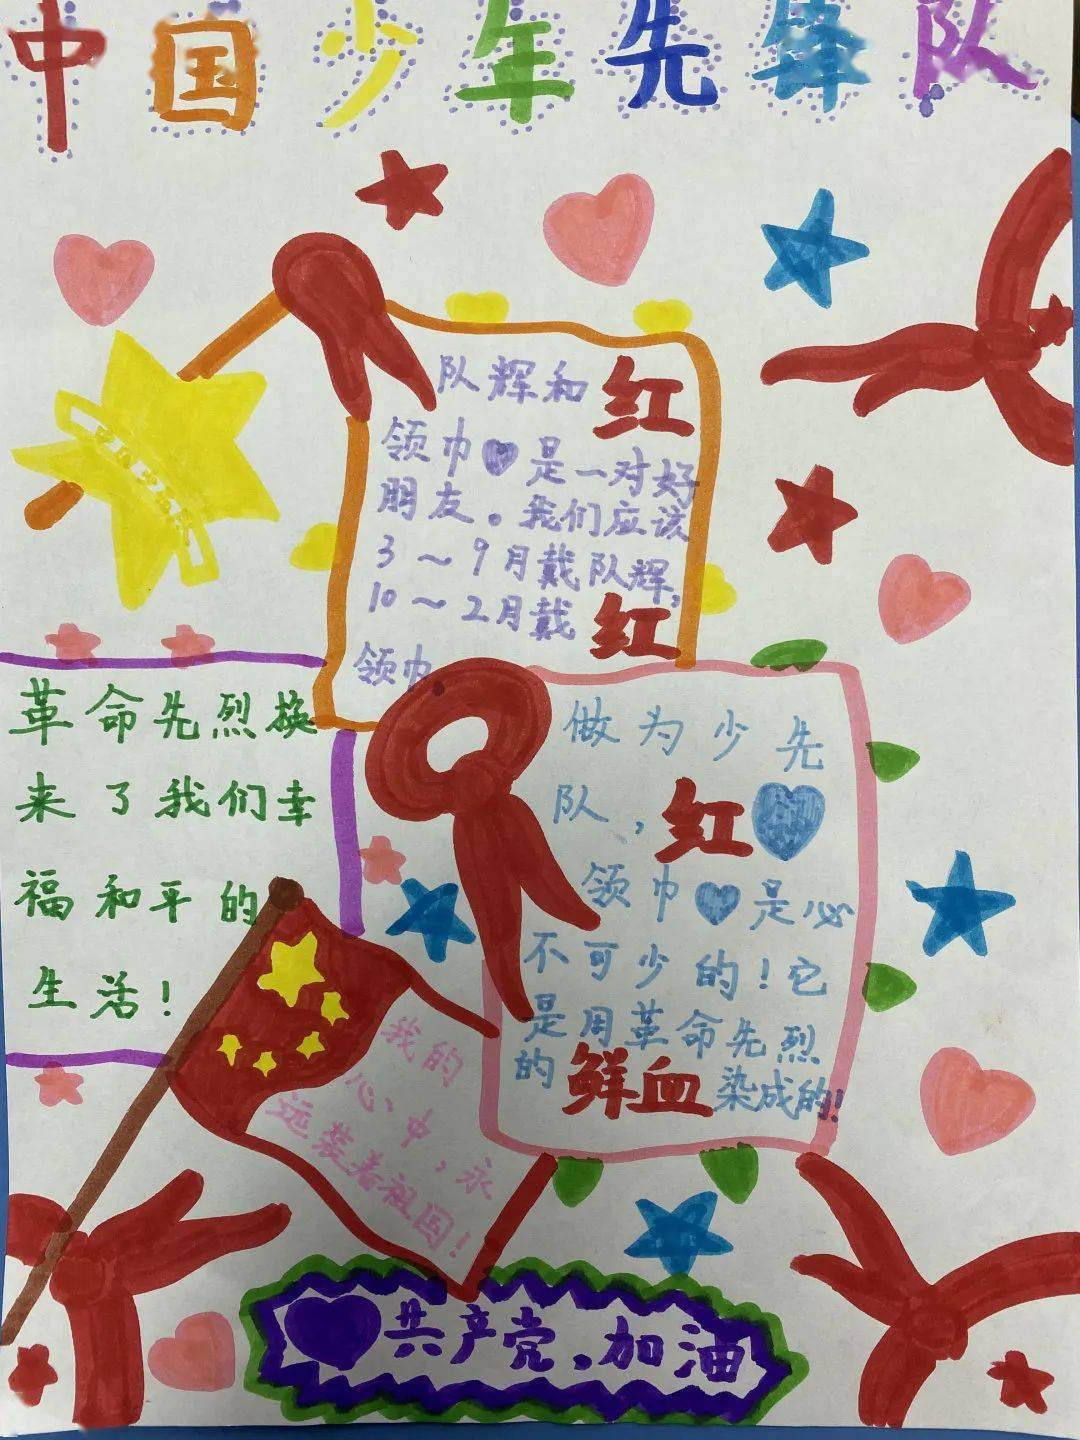 中国少年先锋队
队辉和红
领巾是一对好
朋友。我们应该
3～9月戴队辉,
10～2月戴红
领巾
革命先烈换
来了我们幸
福和平的
生活!
做为少先
队,红
领巾是必
不可少的!它
是用革命先烈
的鲜血染成的!
我的
心中,永
远装着祖国!
共产党、加油